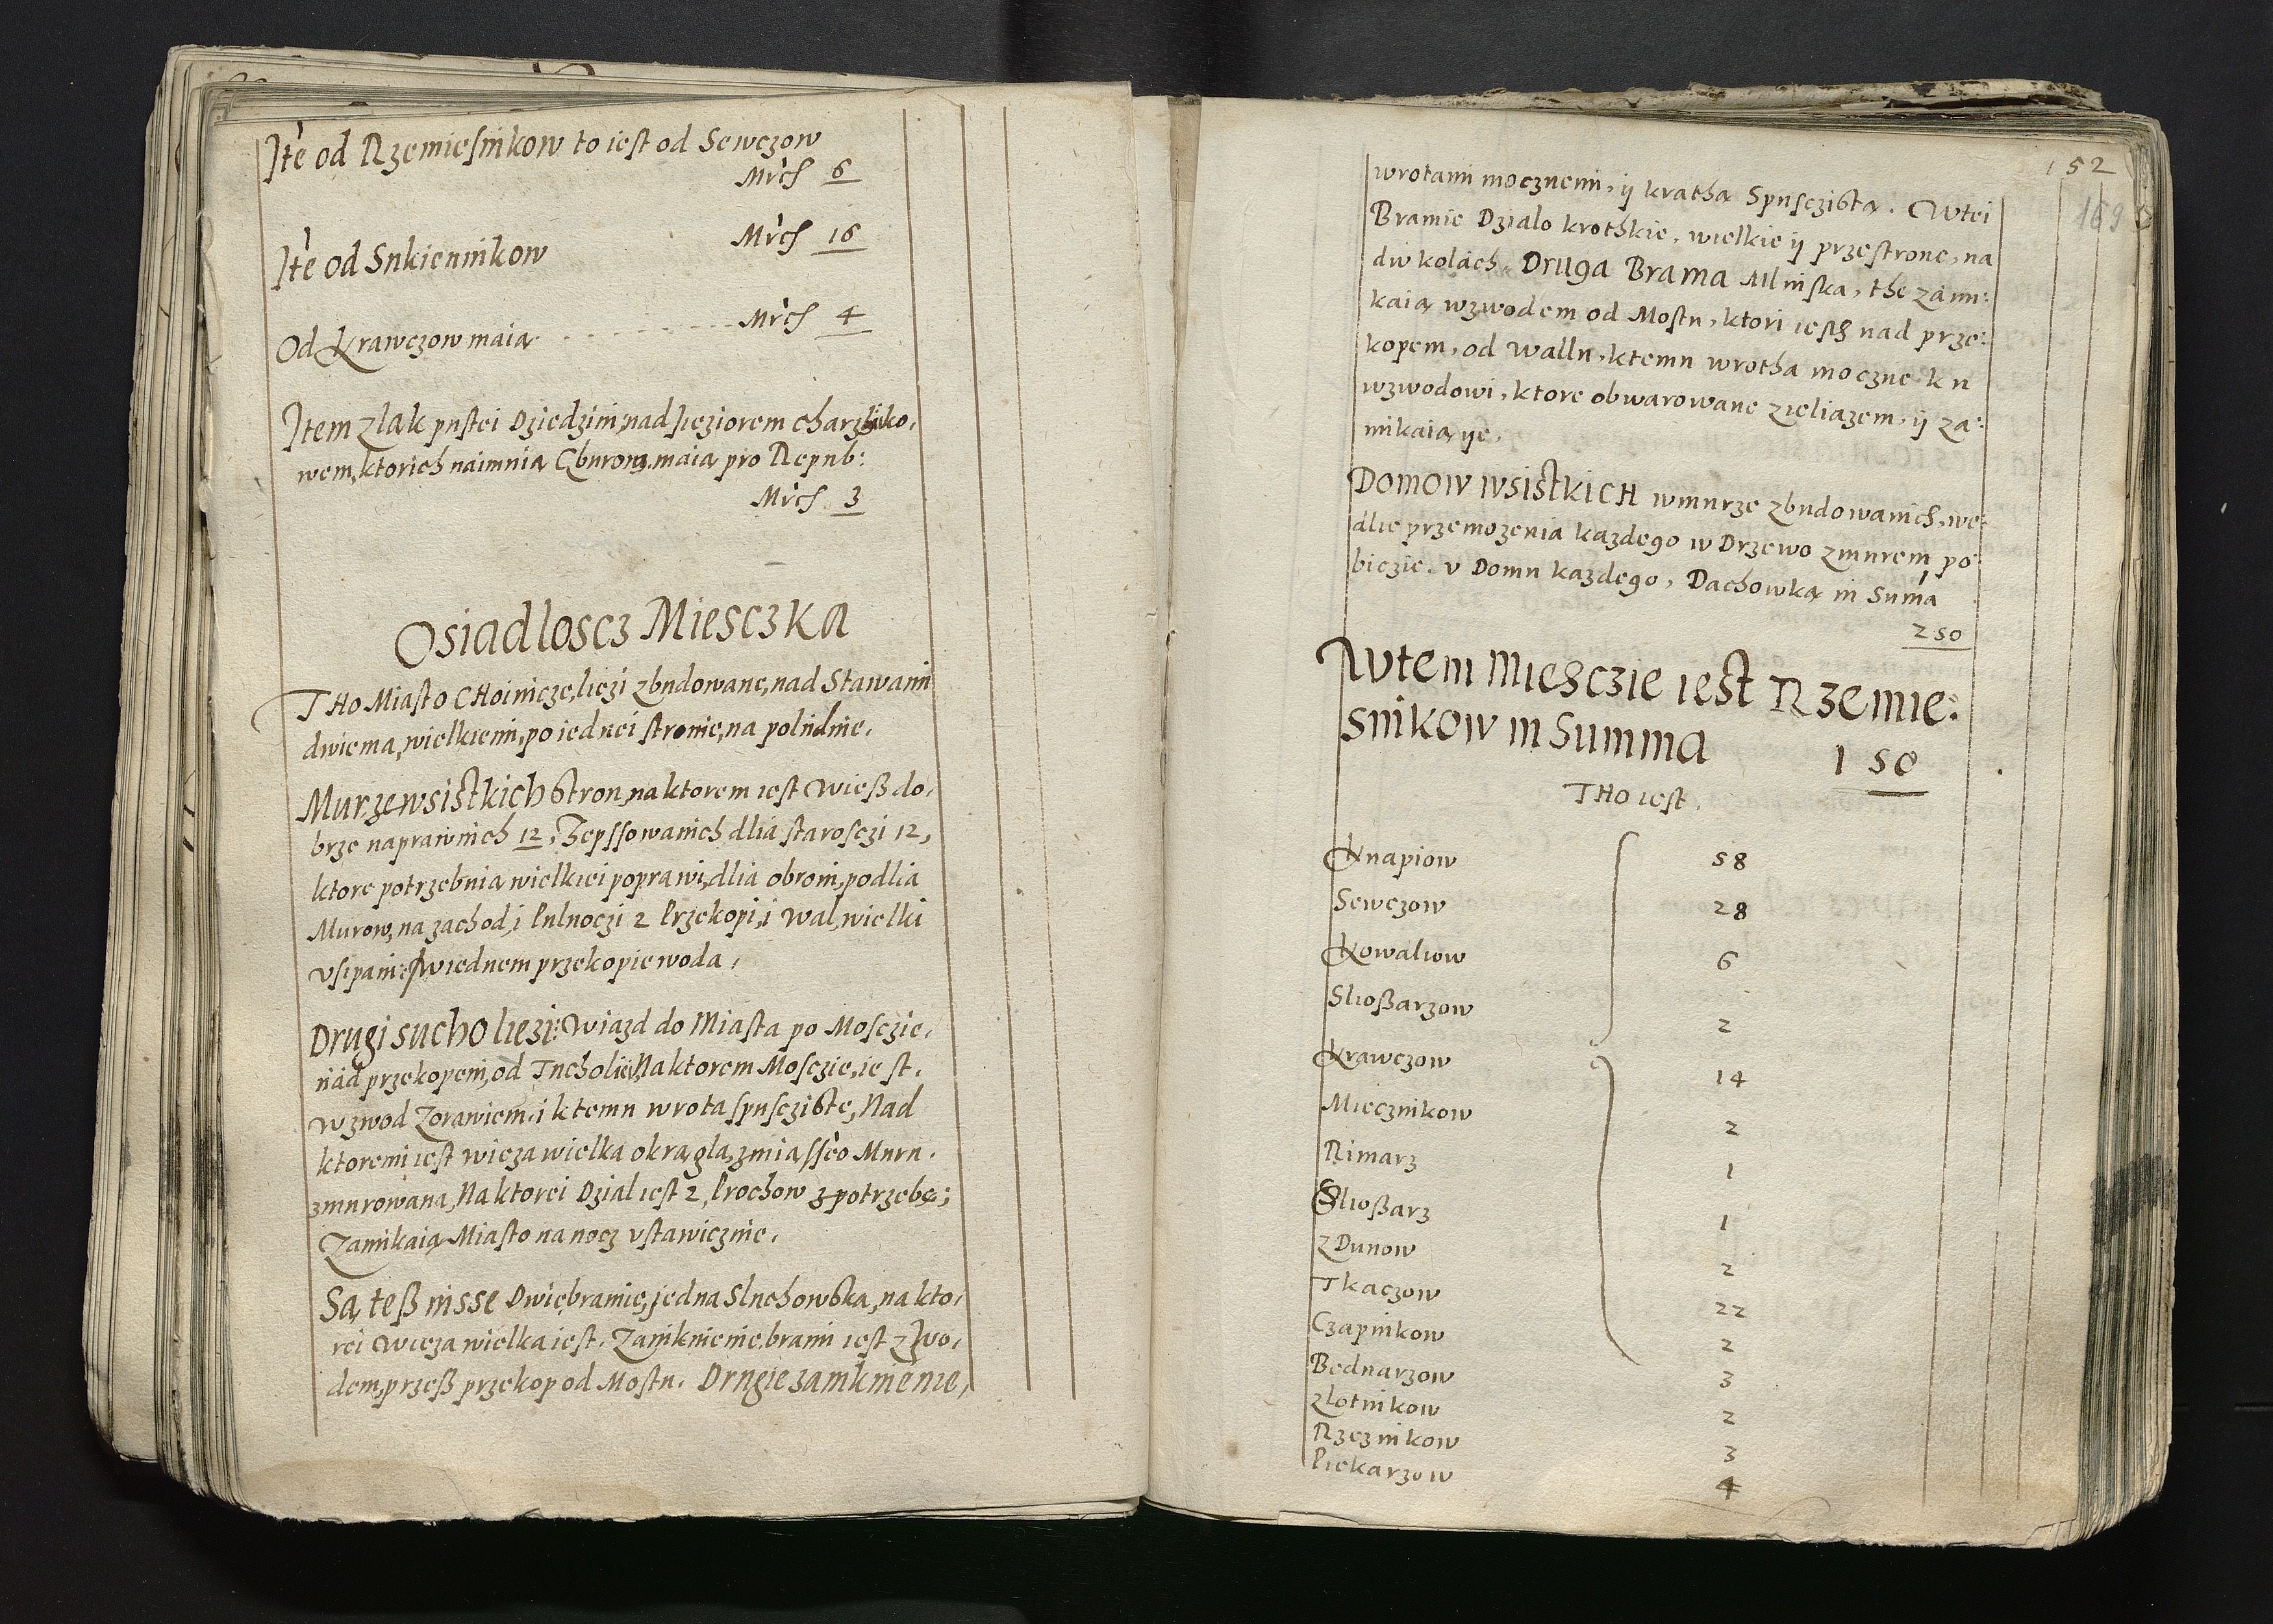 Ite od Rzemiesnikow to iest od Sewczow
Mrcs 6
Ite od Sukiennikow Mrcs 16
Od Krawczow maią Mrcs 4
Item z lak pustei Dziedzini, nad Jeziorem charziko,
wem, ktorich naimnią Cburom. maią pro Repub:
Mrcs 3
Osiadloscz Miesczka
THo Miasto CHoinicze, liezi zbudowane, nad Stawami
dwiema, wielkiemi, po iednei stronie, na poludnie.
Mur ze wsistkich stron, na ktorem iest Wieß do,
brze naprawnich 12, Zepssowanich dlia starosczi 12,
ktore potrzebnia wielkiei poprawi, dlia obroni, podlia
Murow, na zachod, i Pulnoczi 2 Przekopi, i Wal, wielki
vsipani: w iednem przekopie woda,
Drugi sucho liezi: Wiazd do Miasta po Mosczie,
nad przekopem, od Tucholiei, Na ktorem Mosczie, iest,
wzwod Zorawiem, i ktemu wrota spusczisте, Nad
ktoremi iest wieza wielka okrągla, z miąssēo Muru.
zmurowana, Na ktorei Dzial iest 2, Prochow z potrzebę;
Zamikaią Miasto na nocz vstawicznie.
Są teß insse Dwie bramie, jedna Sluchowska, na kto,
rei Wieza wielka iest. Zamknienie brami iest z wo,
dem, przeß przekop od Mostu. Drugie zamknienie,
152
169
wrotami mocznemi, ij kratha Spusczista. W tei
Bramie Dzialo krothkie, wielkie ij przestrone, na
dw kolach. Druga Brama Mlinska, the zam:
kaią wzwodem od Mostu, ktori iest nad prze:
kopem, od Wallu, ktemu wrotha moczne ku
wzwodowi, ktore obwarowane zieliazem, ij za:
mikaią ije.
Domow wsistkicH w murze zbudowanich, we:
dlie przemozenia kazdego w Drzewo z murem po
biczie. v Domu kazdego, Dachowką in Suma
250
A w tem Miesczie iest Rzemie:
snikow in Summa 150
THo iest.
Knapiow 58
Sewczow 28
Kowaliow 6
Slioßarzow 2
Krawczow 14
Miecznikow 2
Rimarz 1
Slioßarz 1
zDunow 2
Tkaczow 22
Czapnikow 2
Bednarzow 3
zlotnikow 2
Rzeznikow 3
Piekarzow 4